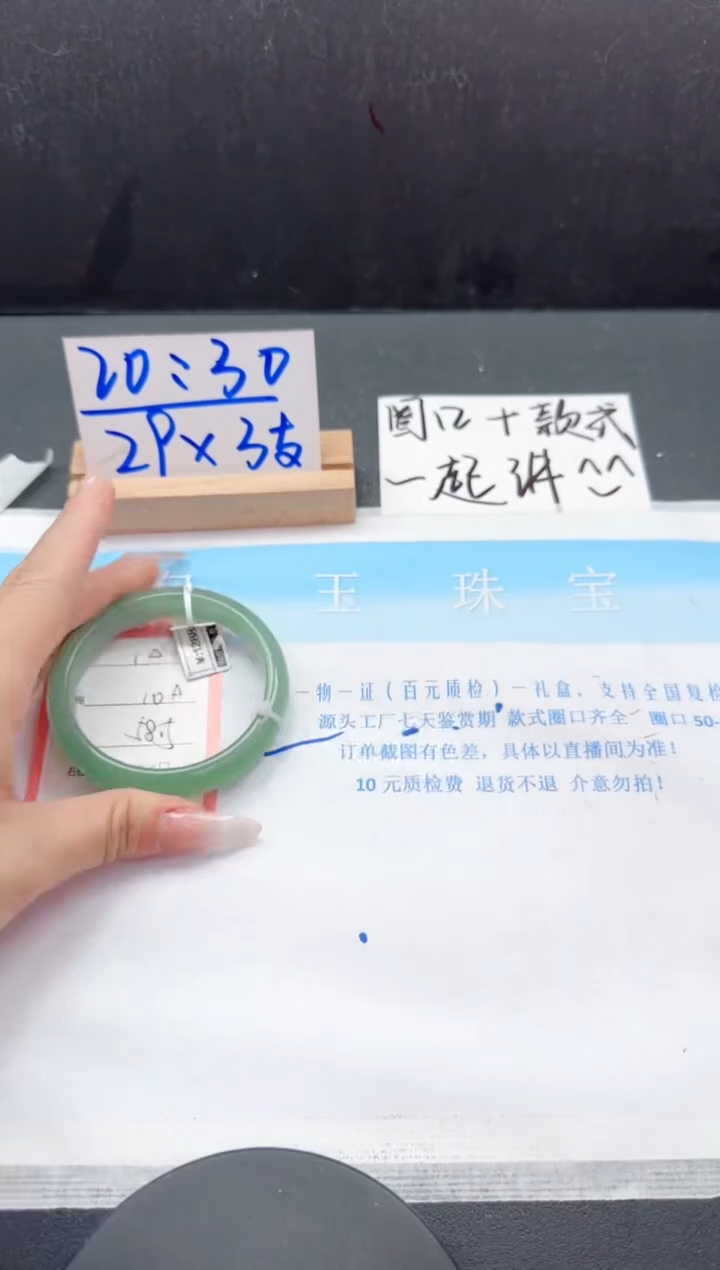 20:30
29×3支
圈口+款式
一起讲^^
玉珠宝
一物一证(百元质检)一礼盒,支持全国复检
源头工厂七天鉴赏期 款式圈口齐全 圈口50-
订单截图有色差,具体以直播间为准!
10元质检费 退货不退 介意勿拍!
10A
58寸